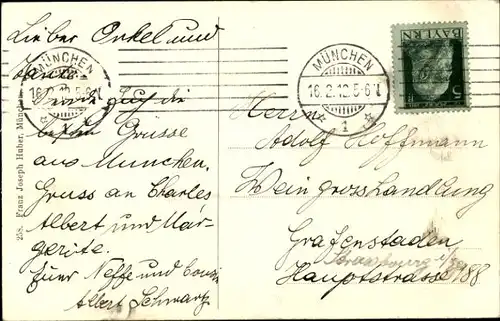 Lieber Onkel und
Tante
Sende Euch die
besten Grüsse
aus München.
Gruss an Charles,
Albert und Mar-
gerite.
Euer Neffe und Cousin
Albert Schwartz
MÜNCHEN
MÜNCHEN
16.2.12.5-6N.
1
BAYERN
5
Herrn
Adolf Hoffmann
Weingrosshandlung
Grafenstaden
Hauptstrasse 188
258. Franz Joseph Huber, München